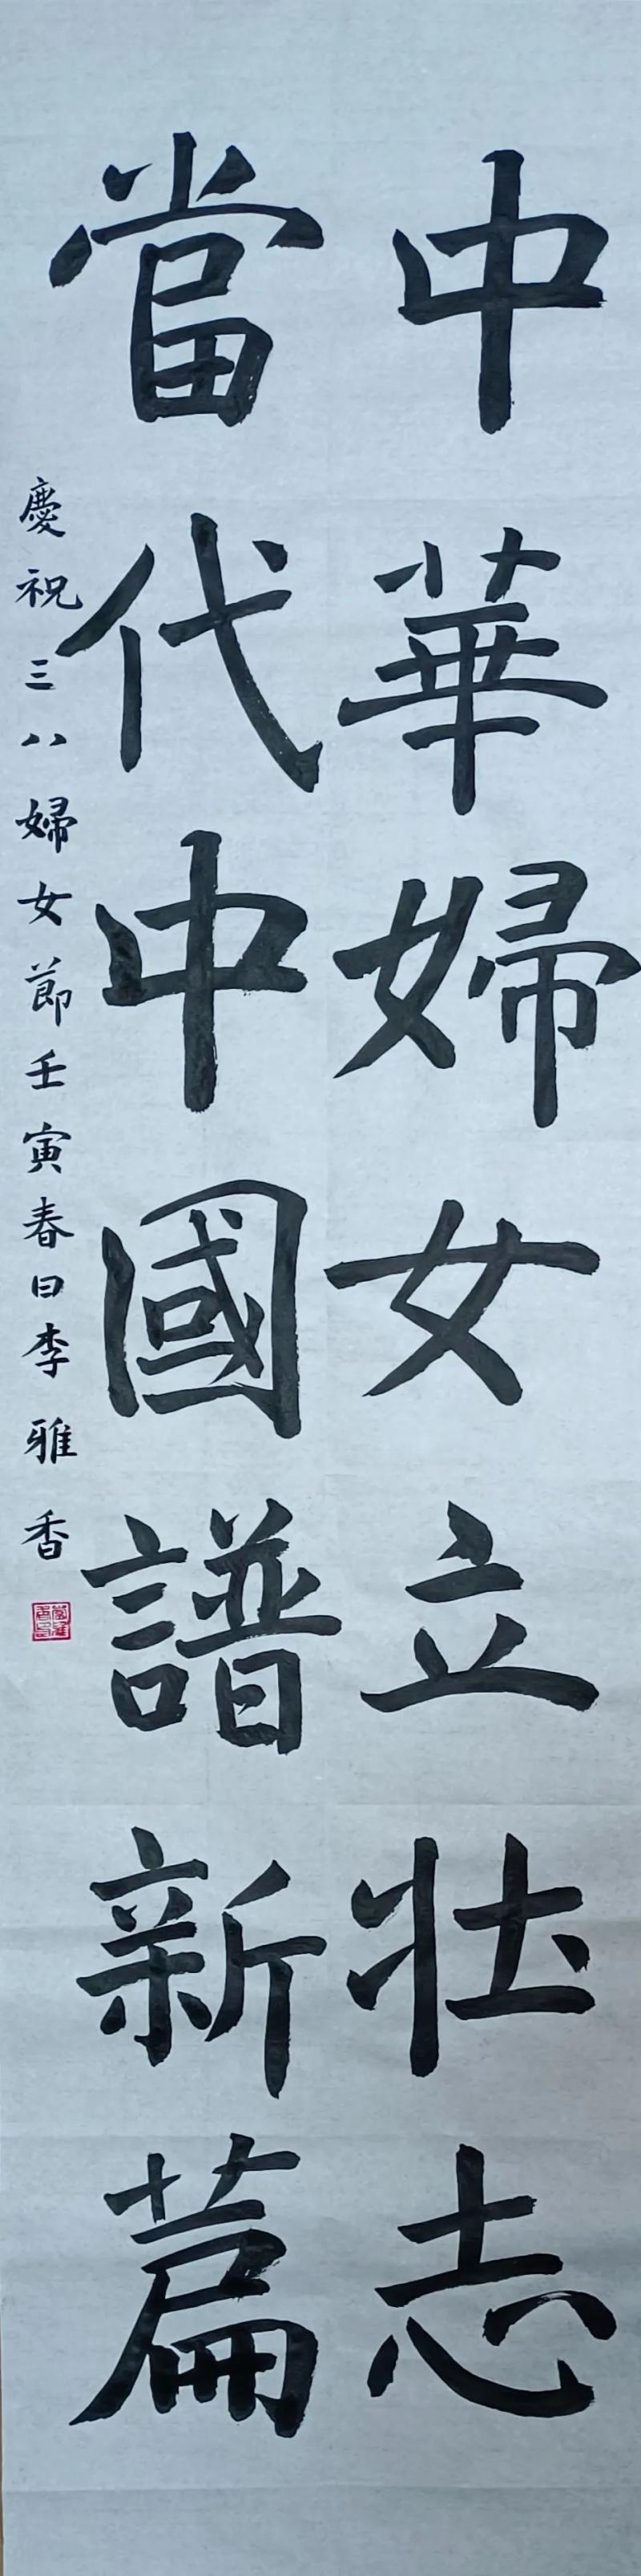 中華婦女立壮志
當代中國譜新篇
慶祝三八婦女節壬寅春日李雅香